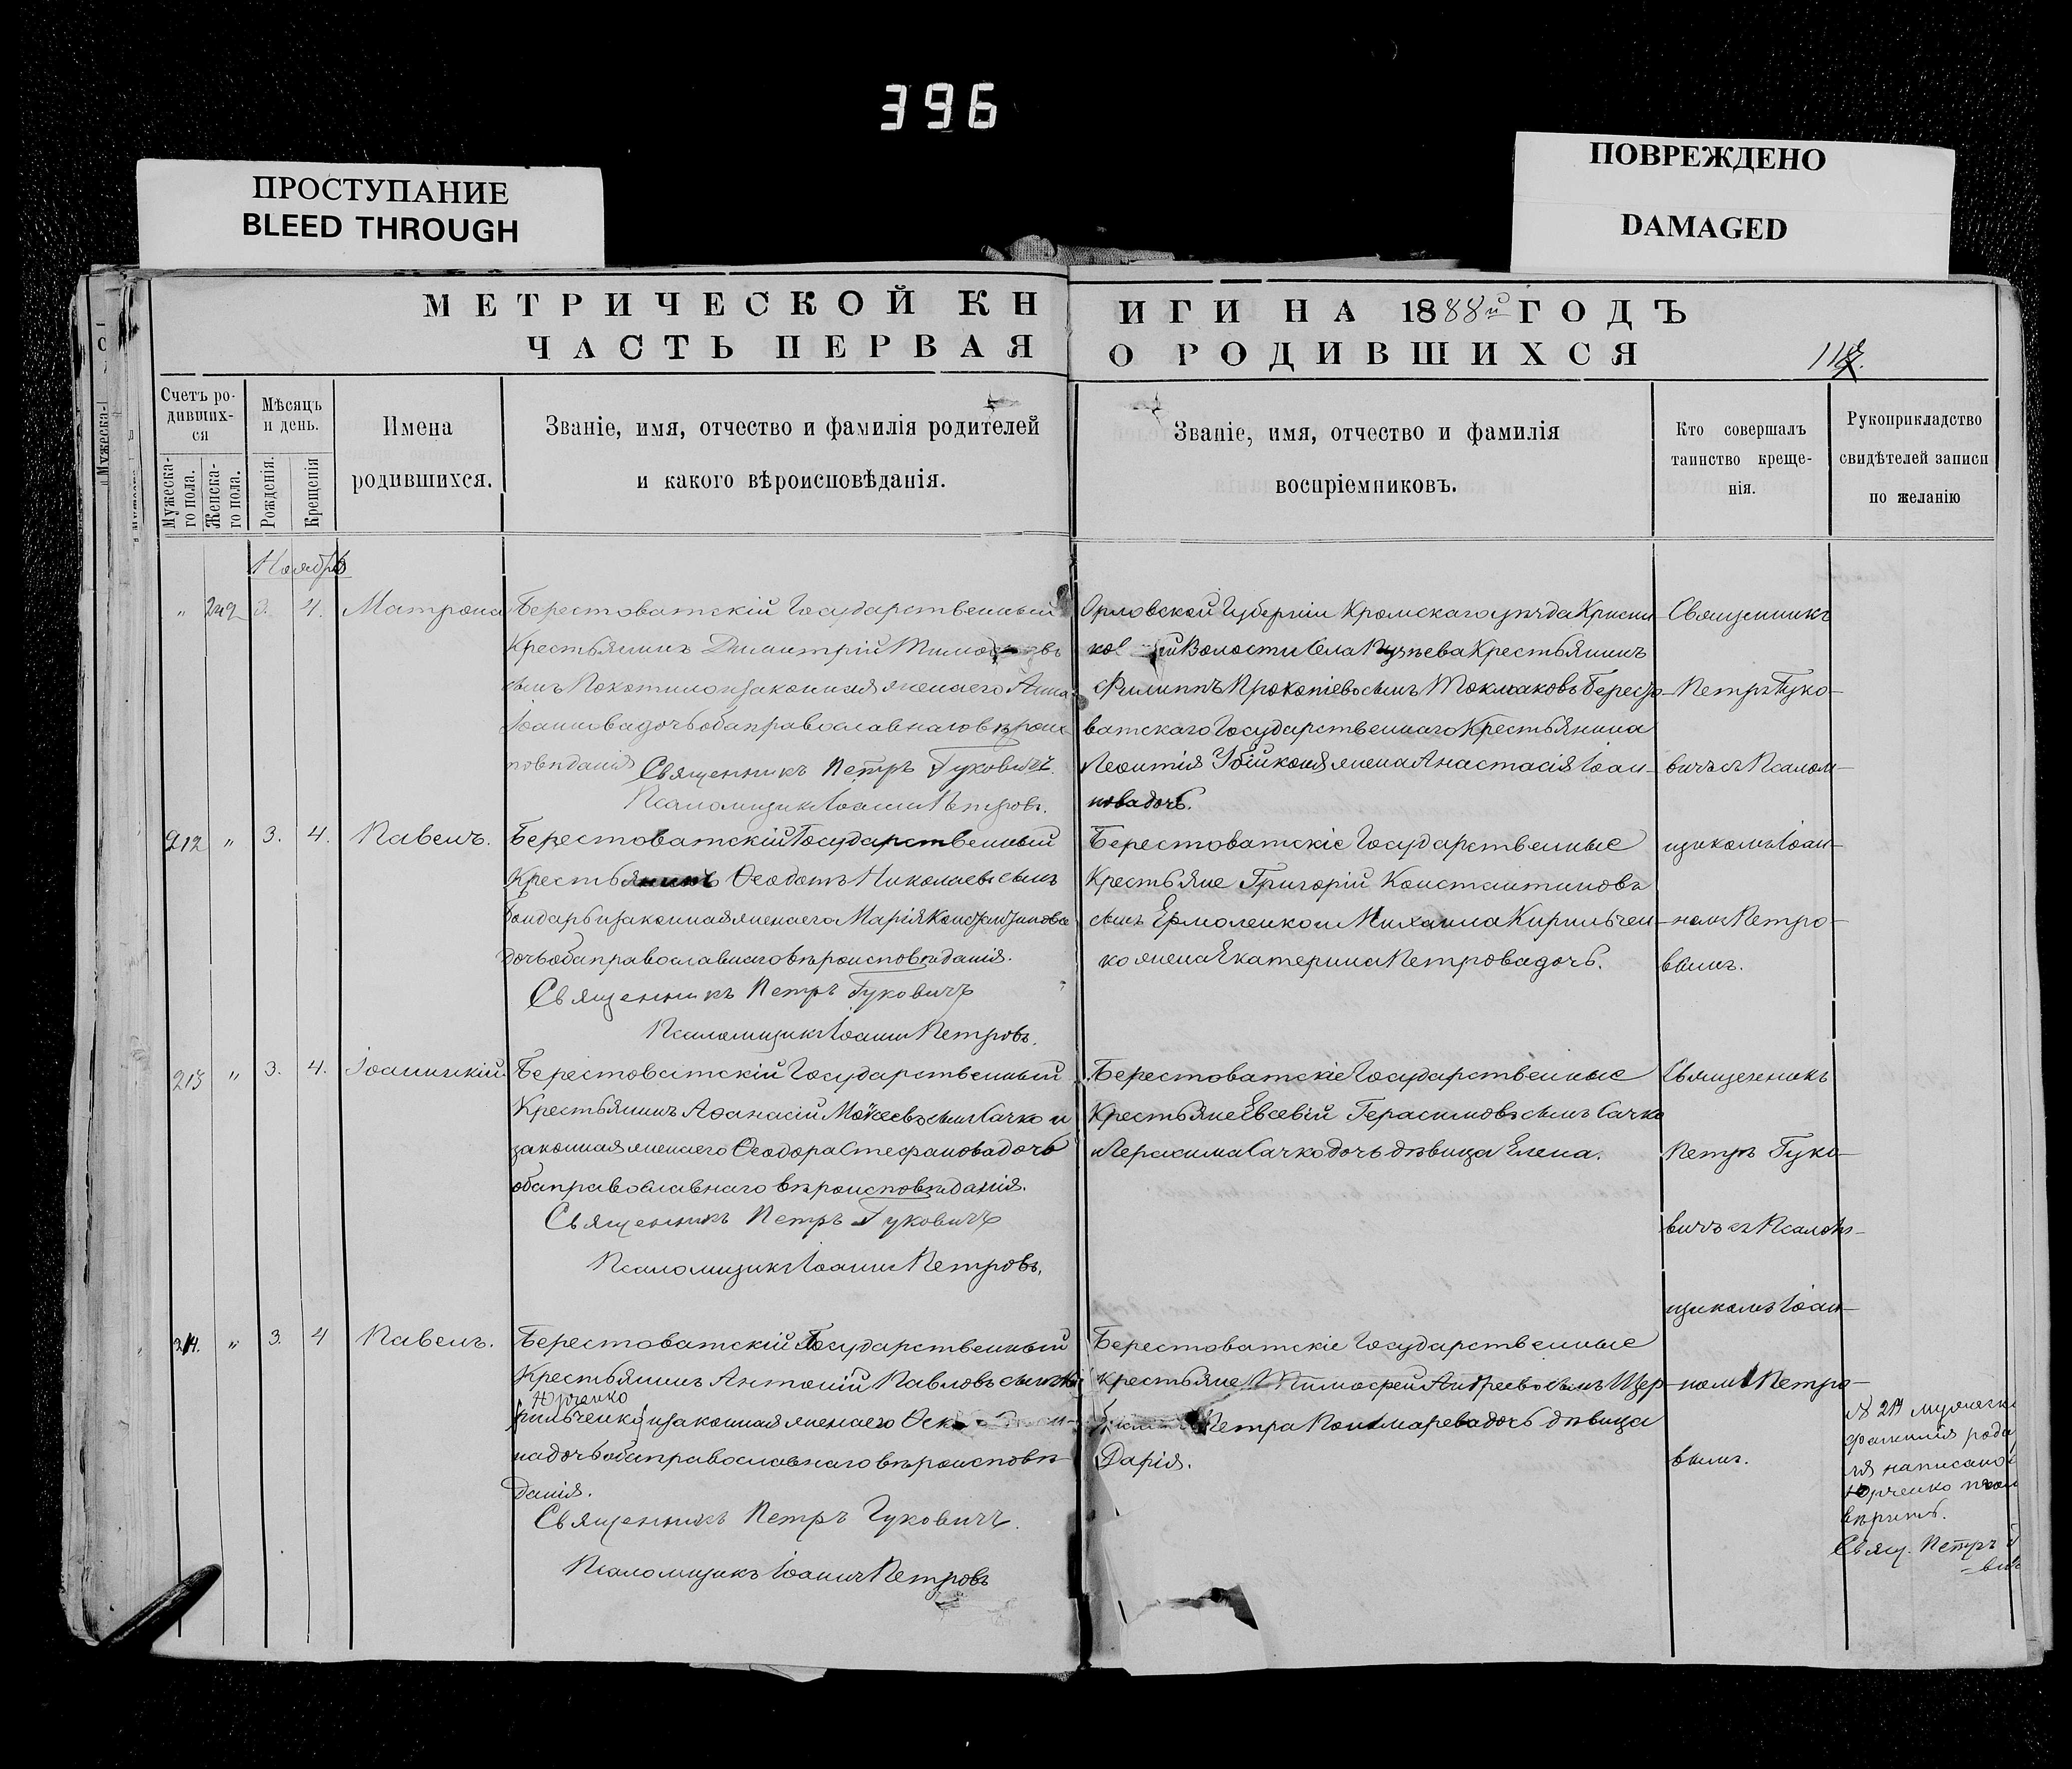 396
ПРОСТУПАНИЕ
BLEED THROUGH
ПОВРЕЖДЕНО
DAMAGED
МЕТРИЧЕСКОЙ КНИГИ НА 1888й ГОДЪ
ЧАСТЬ ПЕРВАЯ О РОДИВШИХСЯ
Счетъ родившихся
Мужеска-го пола.
Женска-го пола.
Мѣсяцъ и день.
Рожденія.
Крещенія
Имена
родившихся.
Званіе, имя, отчество и фамилія родителей
и какого вѣроисповѣданія.
Званіе, имя, отчество и фамилія
воспріемниковъ.
Кто совершалъ
таинство креще-
нія.
Рукоприкладство
свидѣтелей записи
по желанію
Ноябрь
" 3. 4. Матрона
Берестоватскій Государственный
Крестьянинъ Димитрій
сынъ Покотило и законная жена его Анна
Іоаннова дочь оба православнаго вѣроис
повѣданія
Священникъ Петръ Гуковичъ.
Псаломщикъ Іоаннъ Петровъ.
Орловской Губерніи Кромскаго уѣзда
Волости Села Крестьянинъ
Филиппъ Прокопіевъ сынъ Токмаковъ Бересто-
ватскаго Государственнаго Крестьянина
Леонтія жена Анастасія Іоан-
нова дочь.
212 " 3. 4. Павелъ.
Берестоватскій Государственный
Крестьянинъ Ѳеодотъ Николаевъ сынъ
Бондарь и законная жена его Марія Константинова
дочь оба православнаго вѣроисповѣданія.
Священникъ Петръ Гуковичъ
Псаломщикъ Іоаннъ Петровъ.
Берестоватскіе Государственные
Крестьяне Григорій Константиновъ
сынъ Ермоленко и Михаила Кирильчен-
ко жена Екатерина Петрова дочь.
Священникъ
Петръ Гуко-
вичъ съ Псалом-
щикомъ Іоан-
номъ Петро-
вымъ.
213 " 3. 4. Іоанникій.
Берестоватскій Государственный
Крестьянинъ Аѳанасій Моѵсеевъ сынъ Сачко и
законная жена его Ѳеодора Стефанова дочь
оба православнаго вѣроисповѣданія.
Священникъ Петръ Гуковичъ
Псаломщикъ Іоаннъ Петровъ.
Берестоватскіе Государственные
Крестьяне Евсевій Герасимовъ сынъ Сачко
и Герасима Сачко дочь дѣвица Елена.
214. " 3. 4 Павелъ.
Берестоватскій Государственный
Крестьянинъ Антоній Павловъ сынъ Ки
Юрченко
рильченко и законная жена его
на дочь оба православнаго вѣроисповѣ-
данія.
Священникъ Петръ Гуковичъ.
Псаломщикъ Іоаннъ Петровъ
Берестоватскіе Государственные
Крестьяне Тимофей Андреевъ сынъ Щер-
Петра Пономарева дочь дѣвица
Дарія.
Священникъ
Петръ Гуко-
вичъ съ Псалом-
щикомъ Іоан-
номъ Петро-
вымъ.
№ 214
фамилія роди
ля написано
Юрченко
вѣрить.
Свящ. Петръ